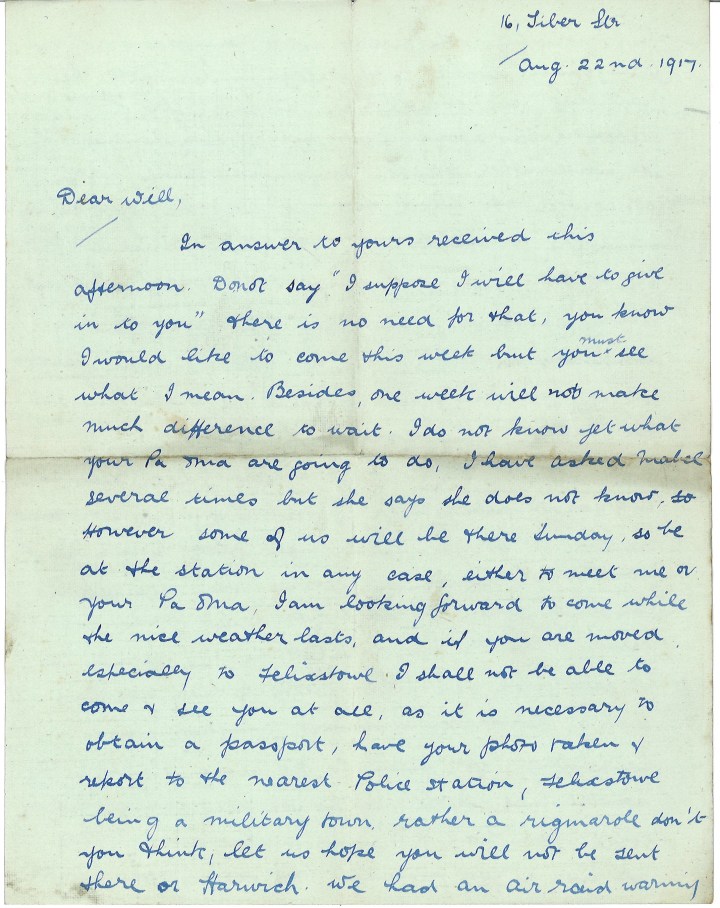 16, Tiber Str
Aug. 22nd. 1917.
Dear Will,
In answer to yours received this
afternoon. Donot say "I suppose I will have to give
in to you" there is no need for that, you know
I would like to come this week but you must see
what I mean. Besides, one week will not make
much difference to wait. I do not know yet what
your Pa & Ma are going to do, I have asked Mabel
several times but she says she does not know, so
However some of us will be there Sunday, so be
at the station in any case, either to meet me or
your Pa & Ma, I am looking forward to come while
the nice weather lasts, and if you are moved
especially to Felixstowe I shall not be able to
come & see you at all, as it is necessary to
obtain a passport, have your photo taken &
report to the nearest Police Station, Felixstowe
being a military town, rather a rigmarole don't
you think, let us hope you will not be sent
there or Harwich. We had an air raid warning